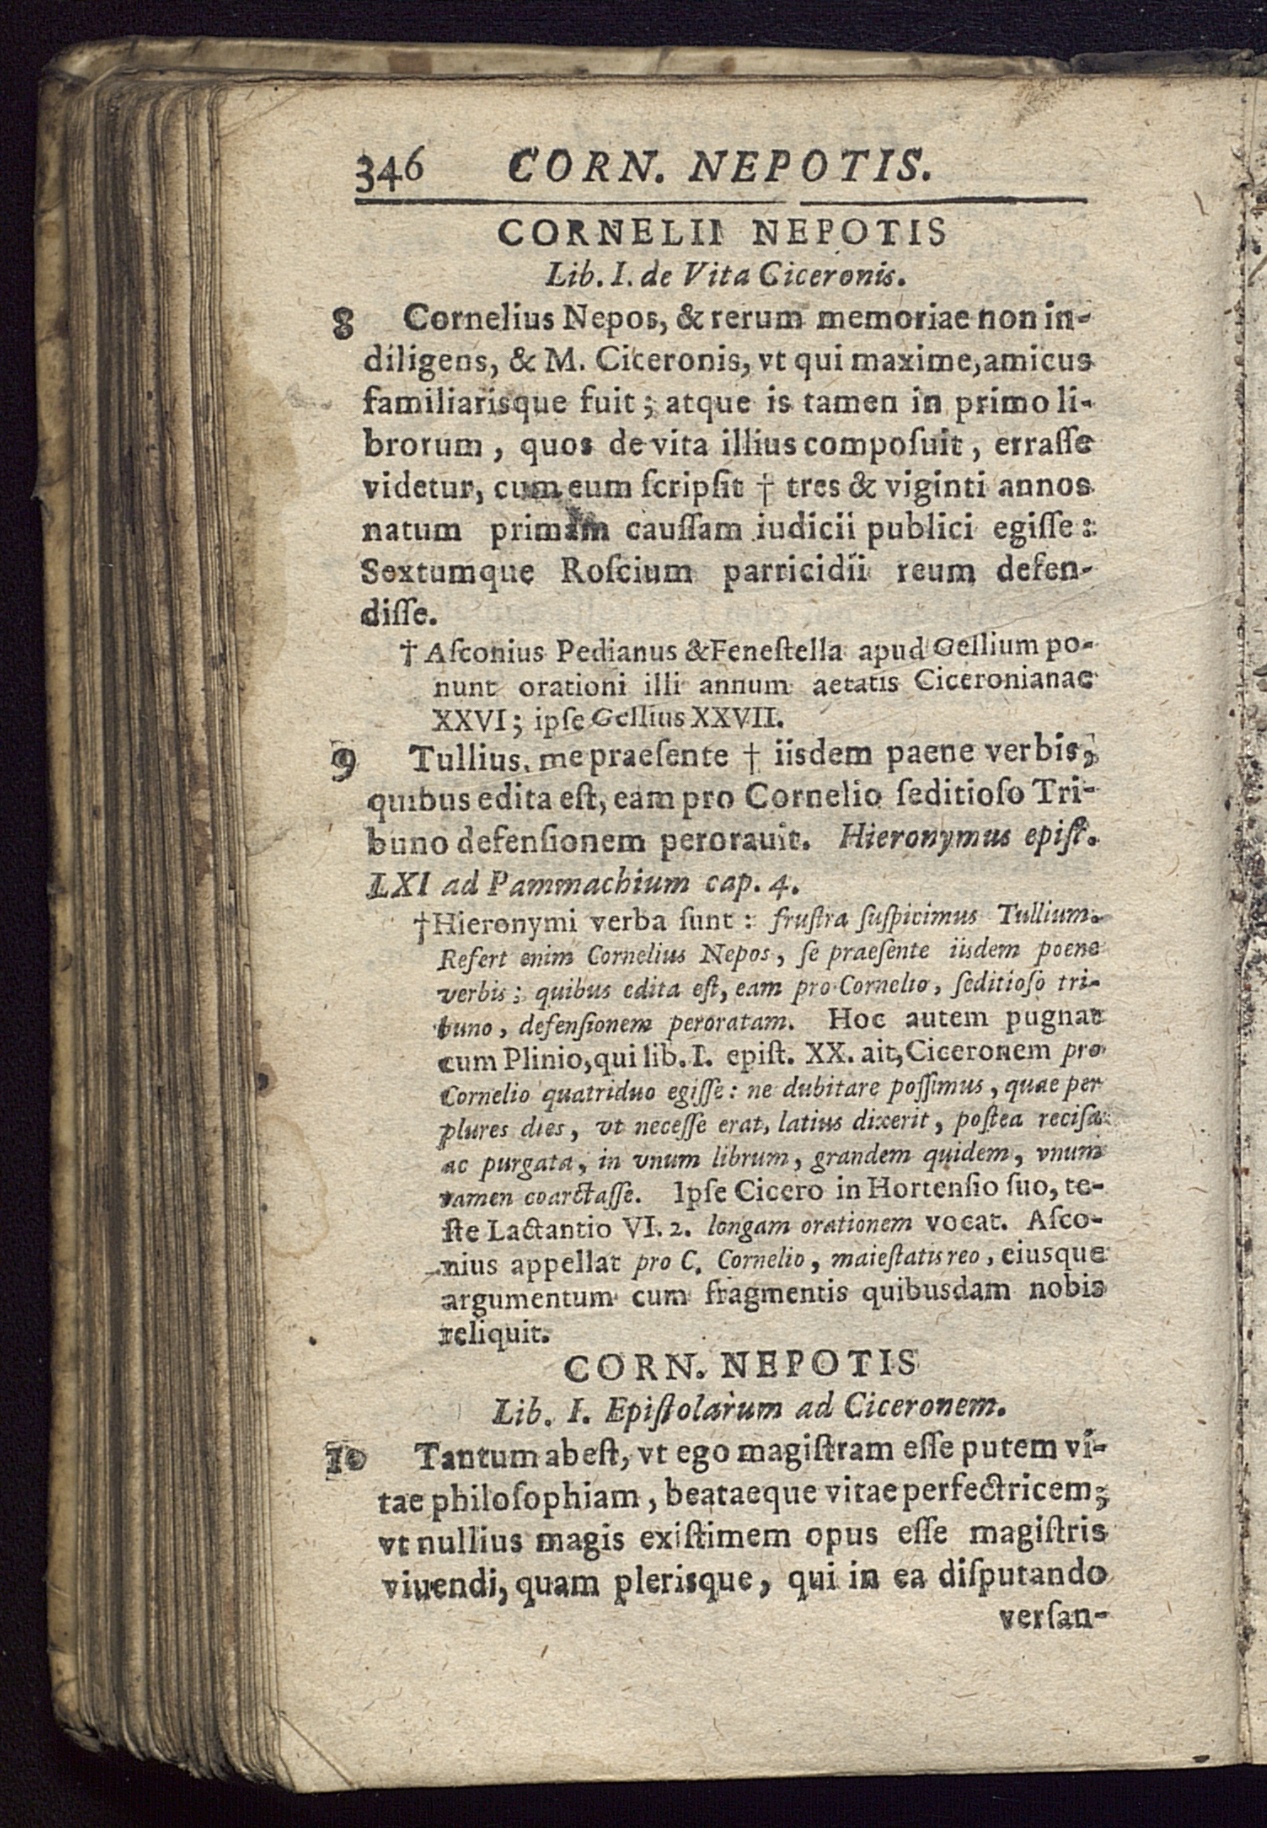 346 CORN. NEPOTIS.
CORNELII NEPOTIS
Lib. I. de Vita Ciceronis.
8 Cornelius Nepos, & rerum memoriae non in-
diligens, & M. Ciceronis, vt qui maxime, amicus
familiarisque fuit; atque is tamen in primo li-
brorum, quos de vita illius compoſuit, erraſſe
videtur, cum eum ſcripſit † tres & viginti annos
natum primam cauſſam iudicii publici egiſſe:
Sextumque Roſcium parricidii reum defen-
diſſe.
† Aſconius Pedianus & Feneſtella apud Gellium po-
nunt orationi illi annum aetatis Ciceronianae
XXVI; ipſe Gellius XXVII.
9 Tullius, me praeſente † iisdem paene verbis,
quibus edita eſt, eam pro Cornelio ſeditioſo Tri-
buno defenſionem perorauit. Hieronymus epiſt.
LXI ad Pammachium cap. 4.
† Hieronymi verba ſunt: fruſtra ſuſpicimus Tullium.
Refert enim Cornelius Nepos, ſe praeſente iisdem poene
verbis; quibus edita eſt, eam pro Cornelio, ſeditioſo tri-
buno, defenſionem peroratam. Hoc autem pugnat
cum Plinio, qui lib. I. epiſt. XX. ait, Ciceronem pro
Cornelio quatriduo egiſſe: ne dubitare poſſimus, quae per
plures dies, vt neceſſe erat, latius dixerit, poſtea reciſa
ac purgata, in vnum librum, grandem quidem, vnum
tamen coarctaſſe. Ipſe Cicero in Hortenſio ſuo, te-
ſte Lactantio VI. 2. longam orationem vocat. Aſco-
nius appellat pro C. Cornelio, maieſtatis reo, eiusque
argumentum cum fragmentis quibusdam nobis
reliquit.
CORN. NEPOTIS
Lib. I. Epiſtolarum ad Ciceronem.
10 Tantum abeſt, vt ego magiſtram eſſe putem vi-
tae philoſophiam, beataeque vitae perfectricem;
vt nullius magis exiſtimem opus eſſe magiſtris
viuendi, quam plerisque, qui in ea diſputando
verſan-